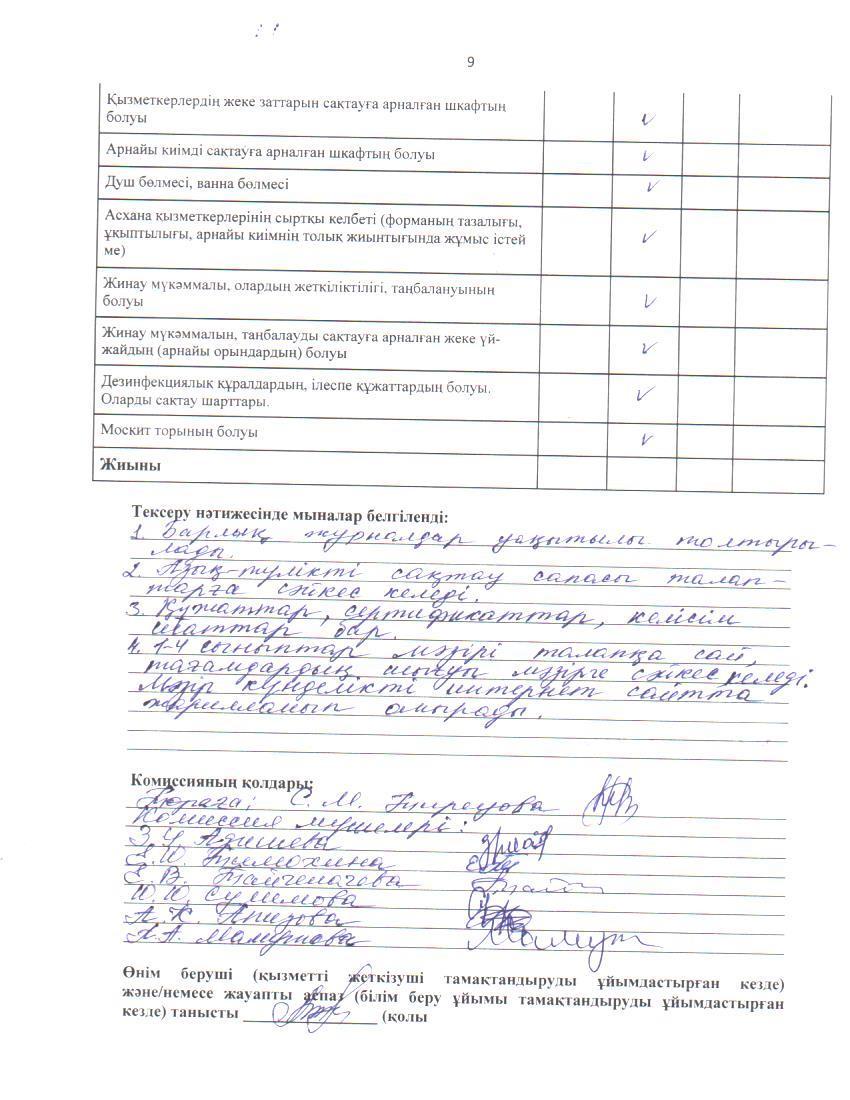 9
Қызметкерлердің жеке заттарын сақтауға арналған шкафтың
болуы
V
Арнайы киімді сақтауға арналған шкафтың болуы
V
Душ бөлмесі, ванна бөлмесі
V
Асхана қызметкерлерінің сыртқы келбеті (форманың тазалығы,
ұқыптылығы, арнайы киімнің толық жиынтығында жұмыс істей
ме)
V
Жинау мүкәммалы, олардың жеткіліктілігі, таңбалануының
болуы
V
Жинау мүкәммалын, таңбалауды сақтауға арналған жеке үй-
жайдың (арнайы орындардың) болуы
V
Дезинфекциялық құралдардың, ілеспе құжаттардың болуы.
Оларды сақтау шарттары.
V
Москит торының болуы
V
Жиыны
Тексеру нәтижесінде мыналар белгіленді:
1. Барлық журналдар уақытылы толтыры-
лады.
2. Азық-түлікті сақтау сапасы талап-
тарға сәйкес келеді.
3. Құжаттар, сертификаттар, келісім
шарттар бар.
4. 1-4 сыныптар мәзірі талапқа сай,
тағамдардың шығуы мәзірге сәйкес келеді.
Мәзір күнделікті интернет сайтта
жарияланып отырады.
Комиссияның қолдары:
Төраға: С. М.
Комиссия мүшелері:
З.У. Адишева
Е.Ю. Тимохина
Е. В.
Ю.И.
А. К. Апизова
А.
Өнім беруші (қызметті жеткізуші тамақтандыруды ұйымдастырған кезде)
және/немесе жауапты аспаз (білім беру ұйымы тамақтандыруды ұйымдастырған
кезде) танысты (қолы